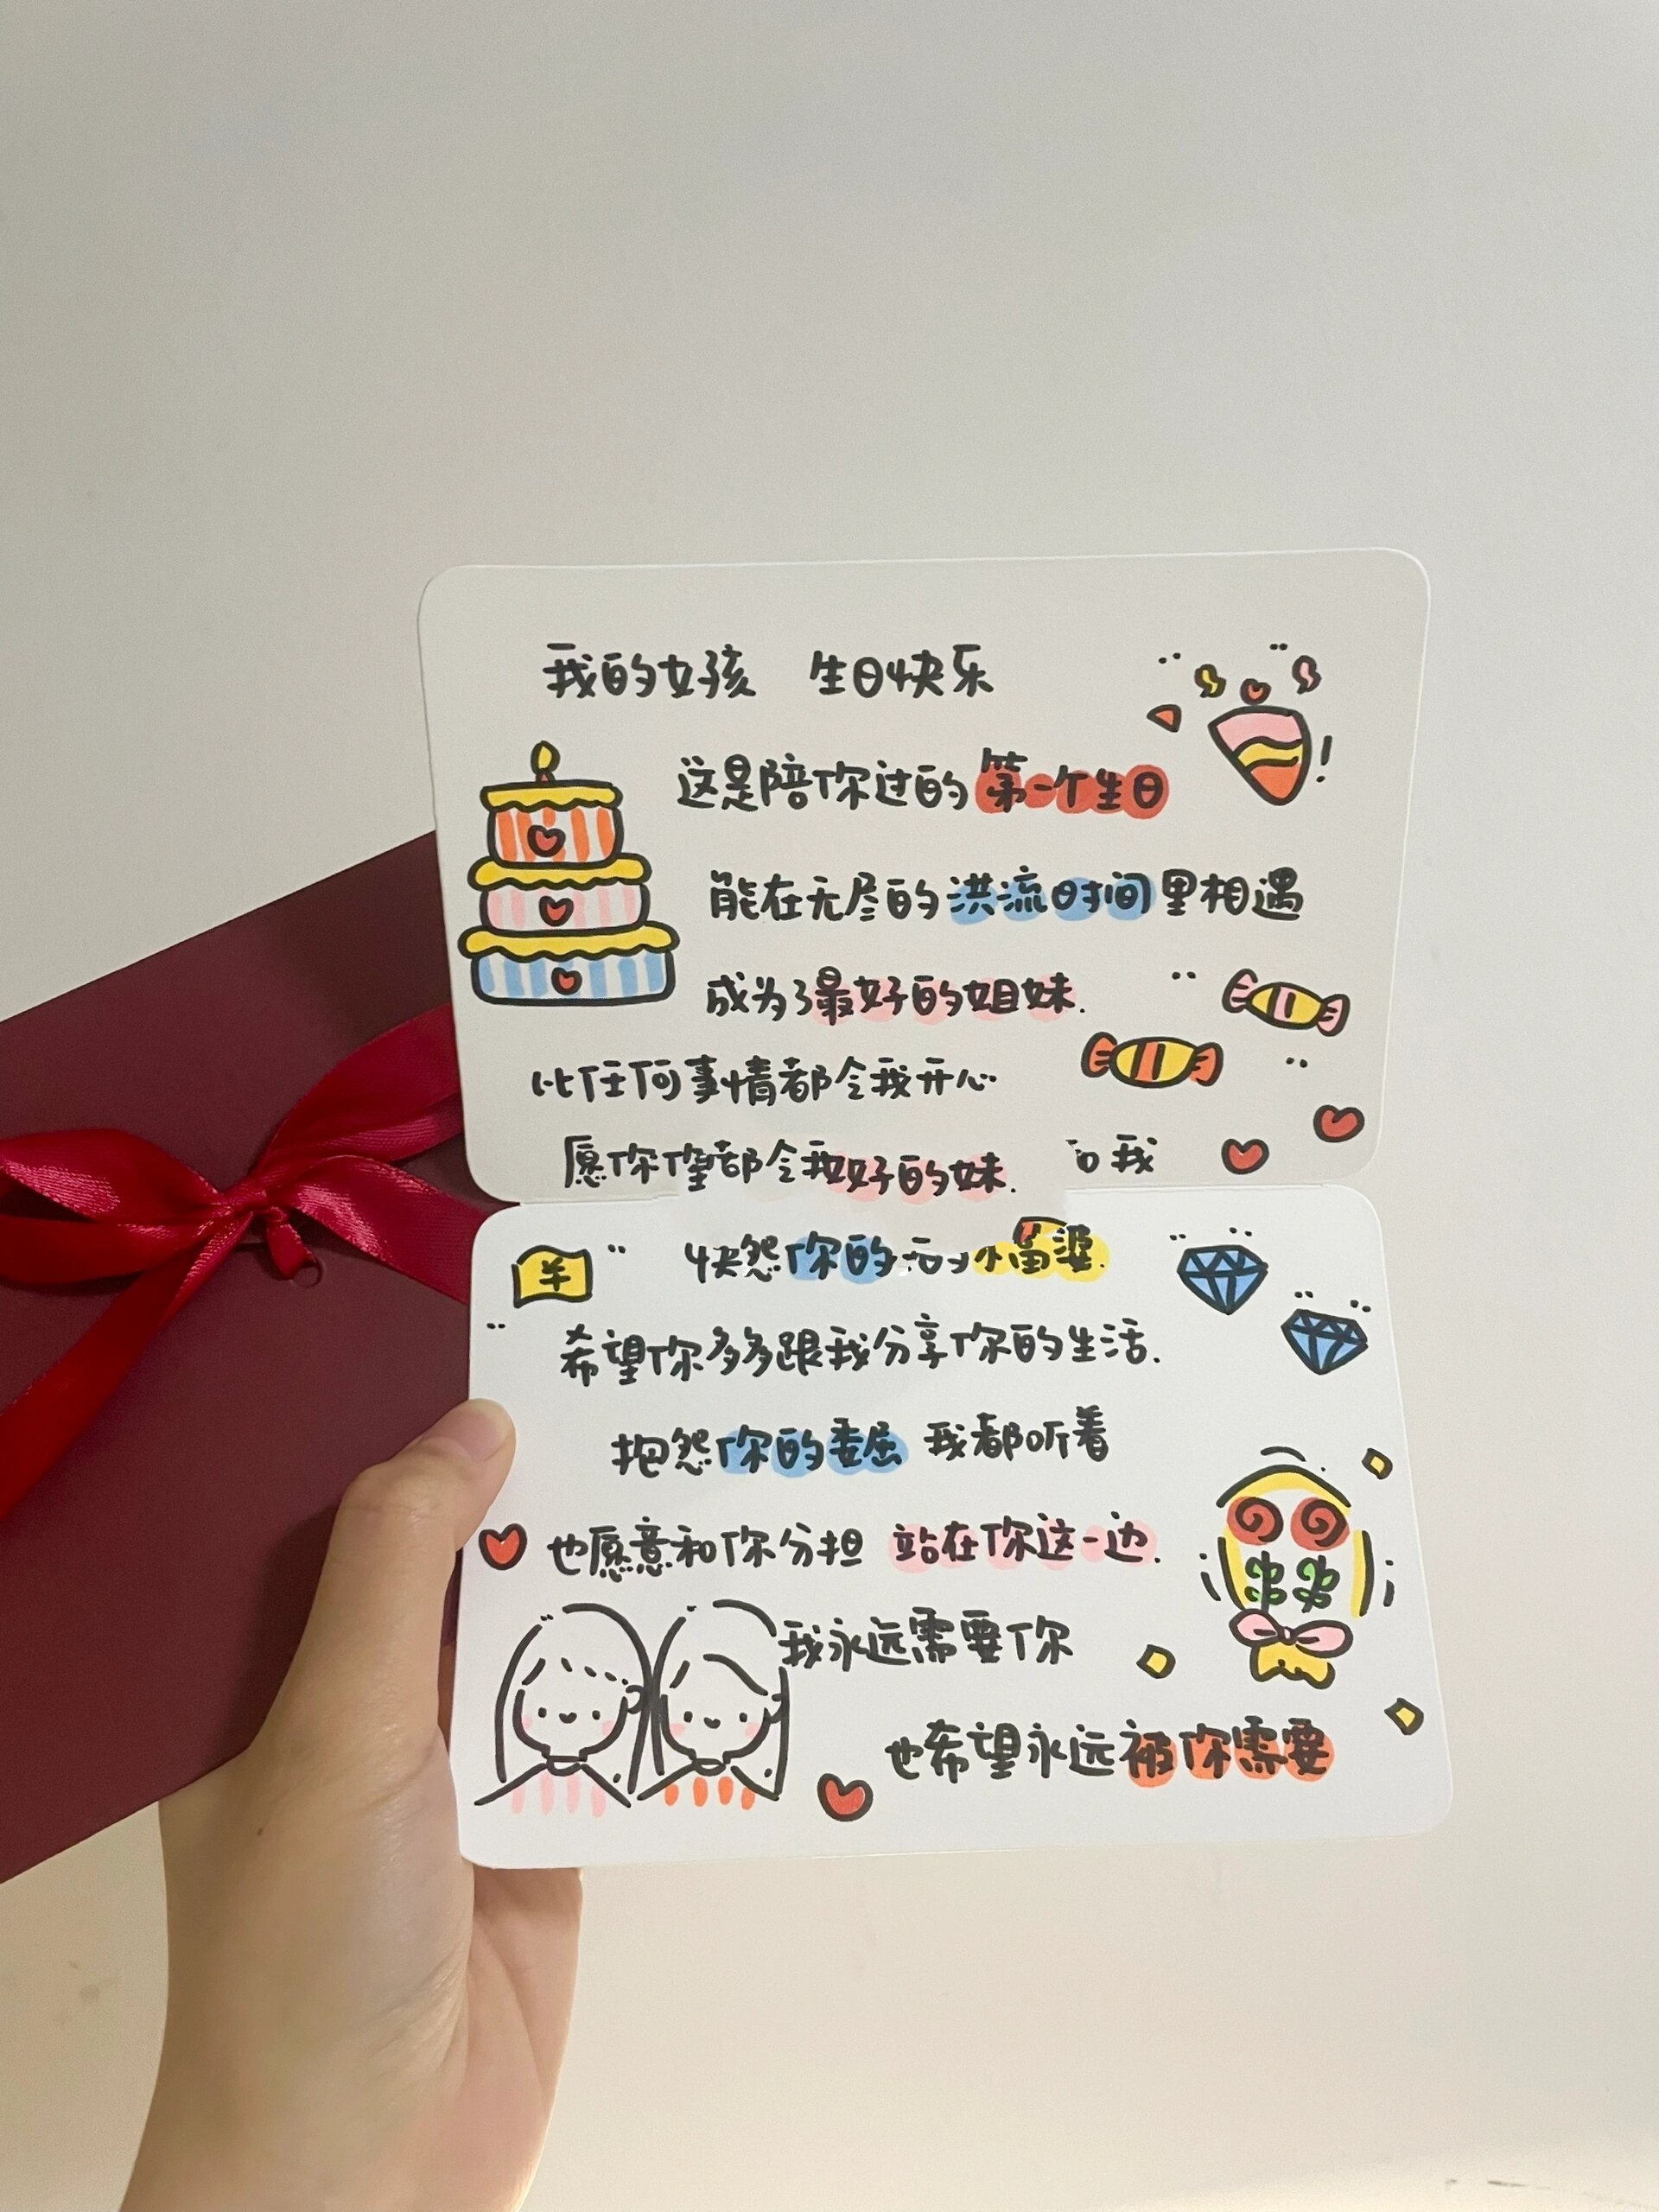 我的女孩 生日快乐
这是陪你过的第一个生日
能在无尽的洪流时间里相遇
成为了最好的姐妹.
比任何事情都令我开心
愿你 都令我 好的妹. 我
你的 小富婆.
羊
希望你多多跟我分享你的生活.
抱怨你的委屈 我都听着
也愿意和你分担 站在你这一边.
我永远需要你
也希望永远被你需要